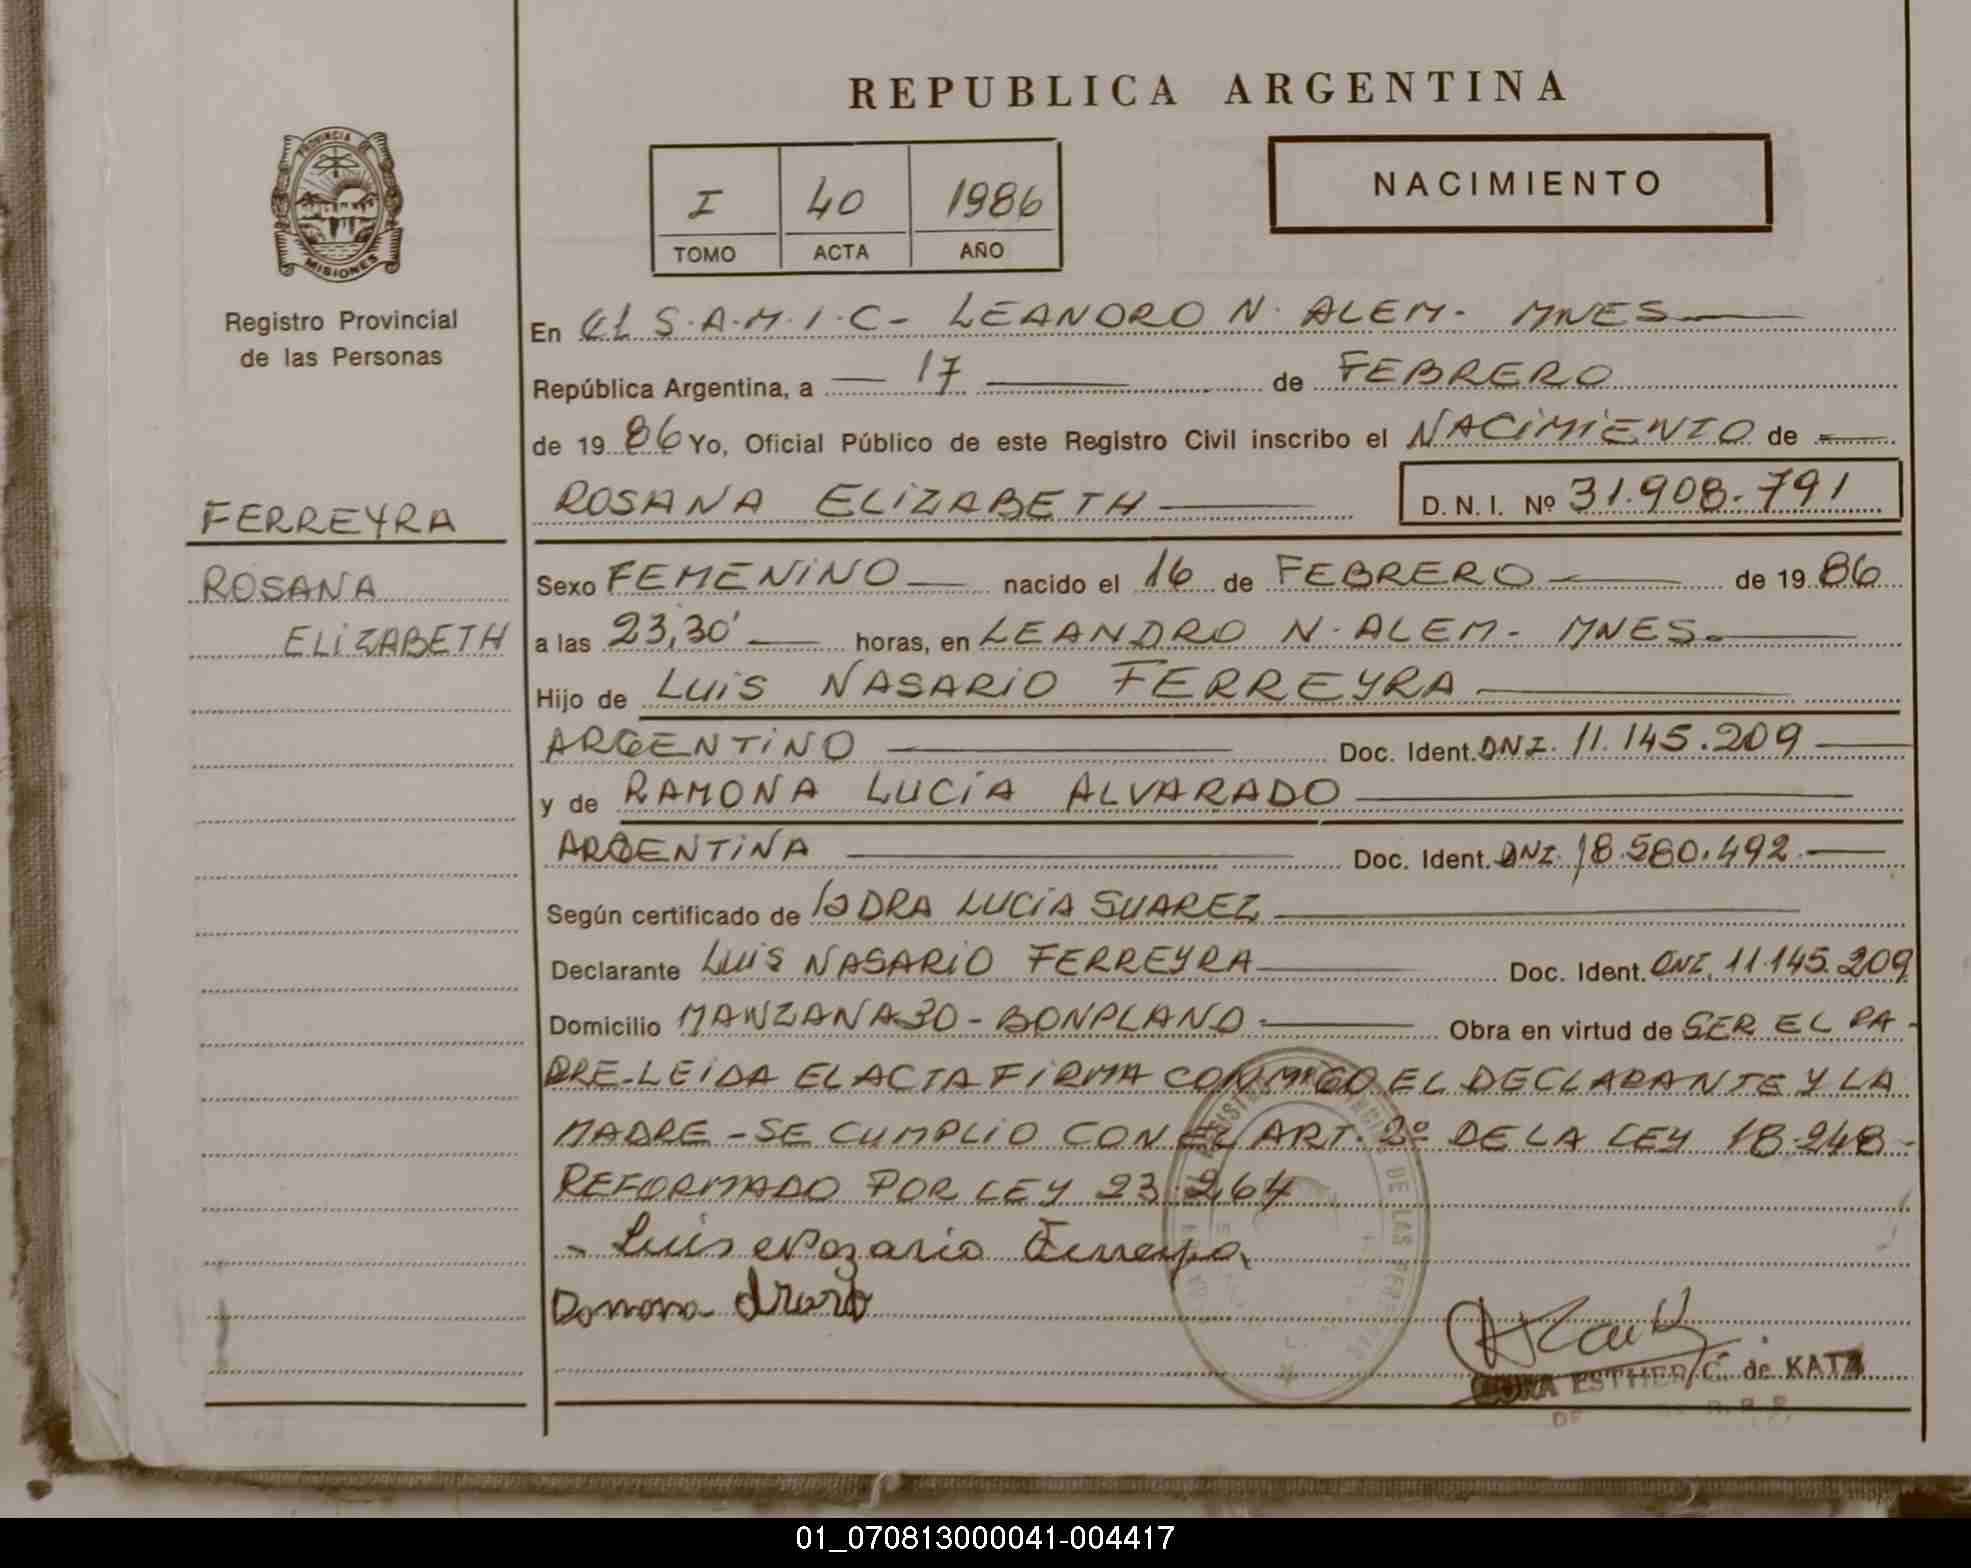 REPUBLICA ARGENTINA
PROVINCIA DE
MISIONES
Registro Provincial
de las Personas
I 40 1986
TOMO ACTA AÑO
NACIMIENTO
En el S.A.M.I.C- LEANDRO N. ALEM- MNES
República Argentina, a 17 de FEBRERO
de 1986 Yo, Oficial Público de este Registro Civil inscribo el NACIMIENTO de
ROSANA ELIZABETH D. N. I. Nº 31.908.791
FERREYRA
ROSANA
ELIZABETH
Sexo FEMENINO nacido el 16 de FEBRERO de 1986
a las 23,30' horas, en LEANDRO N. ALEM- MNES.
Hijo de LUIS NASARIO FERREYRA
ARGENTINO Doc. Ident. DNI. 11.145.209
y de RAMONA LUCIA ALVARADO
ARGENTINA Doc. Ident. DNI. 18.580.492
Según certificado de la DRA LUCIA SUAREZ
Declarante LUIS NASARIO FERREYRA Doc. Ident. DNI. 11.145.209
Domicilio MANZANA 30 - BONPLAND Obra en virtud de SER EL PA-
DRE-LEIDA EL ACTA FIRMA CONMIGO EL DECLARANTE Y LA
MADRE-SE CUMPLIO CON EL ART. 2º DE LA LEY 18.248-
REFORMADO POR LEY 23.264
Luis Nozario Ferreyra
ESTHER C. de KATZ
01_070813000041-004417